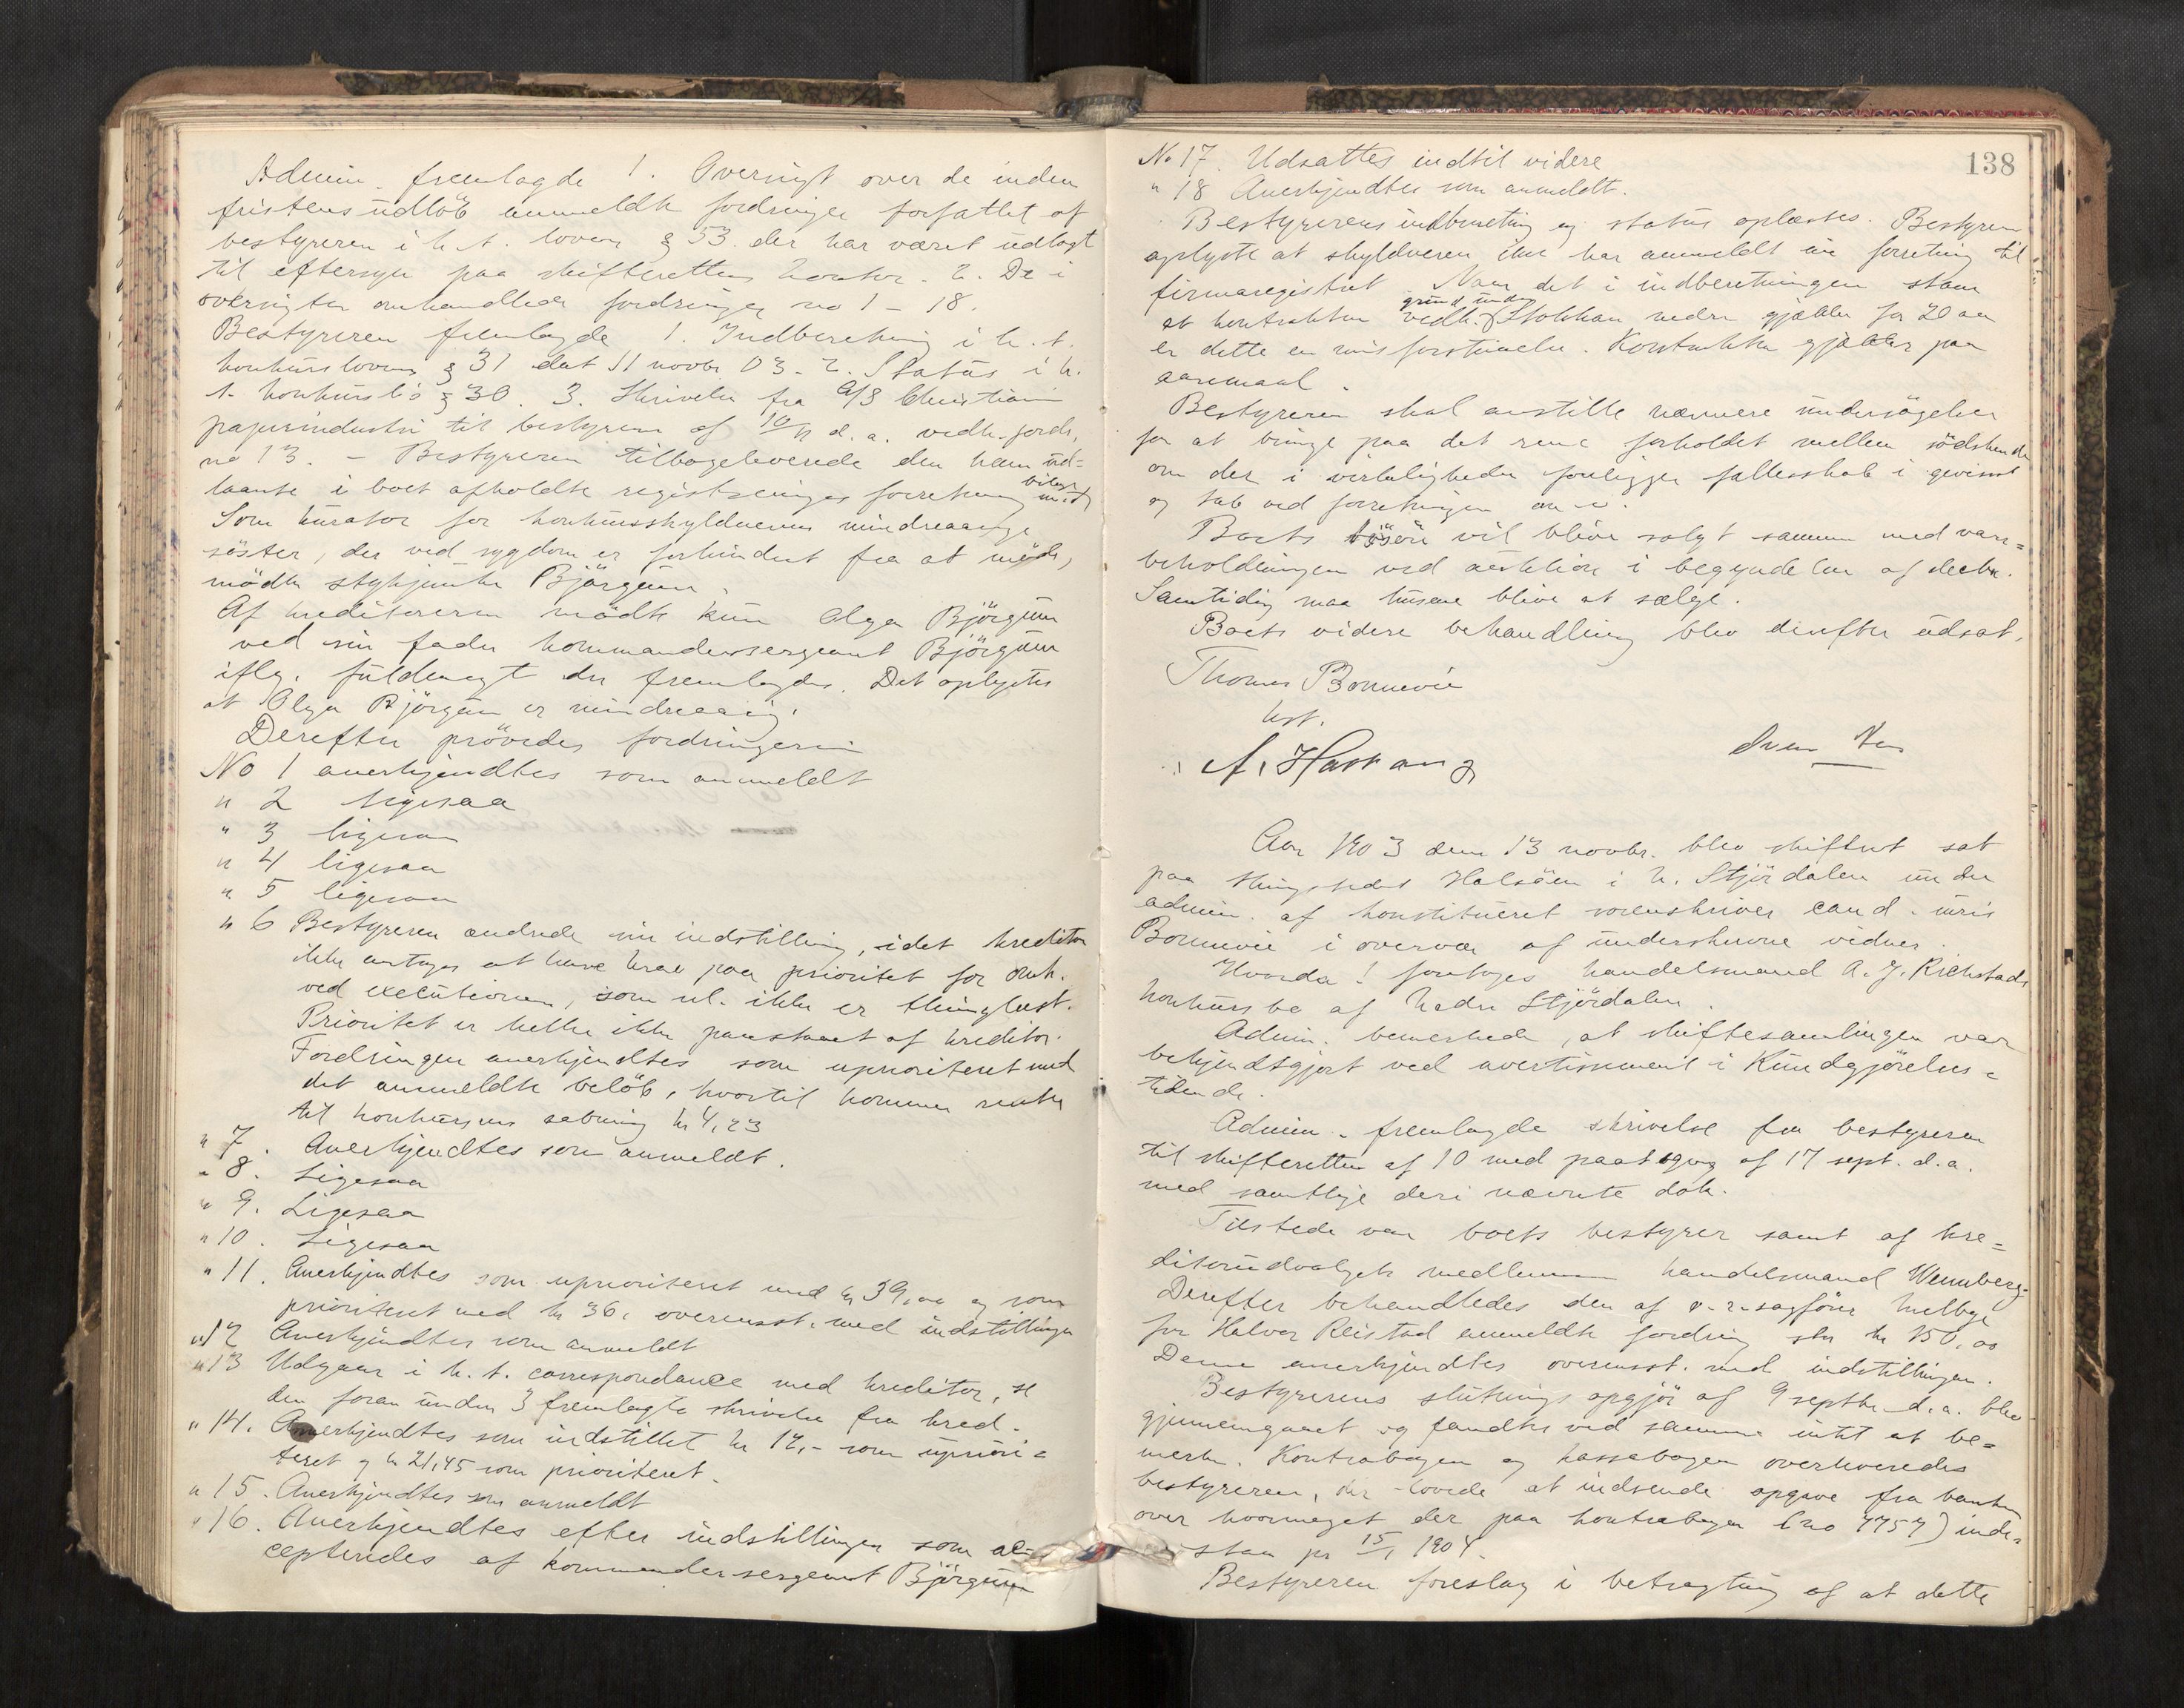 Admin. fremlagde 1. Oversigt over de inden
fristens udløb anmeldte fordringer forfattet af
bestyreren i h. t. lovens § 53. der har været udlagt
til eftersyn paa skifterettens kontor. 2. De i
oversigten omhandlede fordringer no 1 - 18.
Bestyreren fremlagde 1. Indberetning i h. t.
konkurslovens § 31 dat 11 novbr 03. 2. Status i h.
t. konkursl's § 30. 3. Skrivelse fra A/S Christiania
papirindustri til bestyreren af 10/11 d. a. vedk. fordr.
no 13. - Bestyreren tilbageleverede den ham ud-
laante i boet afholdte registreringsforretning med bilag
Som kurator for konkursskyldnerens mindreaarige
söster, der ved sygdom er forhindret fra at möde,
mödte stykjunker Björgum.
Af kreditorerne mödte kun Olga Björgum
ved sin fader kommandersergeant Björgum
iflg. fuldmagt der fremlagdes. Det oplystes
at Olga Björgum er mindreaarig.
Derefter prövedes fordringerne
No 1 anerkjendtes som anmeldt
" 2 ligesaa
" 3 ligesaa
" 4 ligesaa
" 5 ligesaa
" 6 Bestyreren ændrede sin indstilling, idet kreditor
ikke antages at have krav paa prioritet for omk.
ved executionen, som nl. ikke er thinglæst.
Prioritet er heller ikke paastaaet af kreditor.
Fordringen anerkjendtes som uprioriteret med
det anmeldte belöb, hvortil kommer renter
til konkursens aabning kr 4,23
" 7. Anerkjendtes som anmeldt.
" 8. Ligesaa
" 9. Ligesaa
" 10. Ligesaa
" 11. Anerkjendtes som uprioriteret med kr 39,00 og som
prioriteret med kr 36, overensst. med indstillingen
" 12 Anerkjendtes som anmeldt
" 13 Udgaar i h. t. correspondance med kreditor, se
den foran under 3 fremlagte skrivelse fra kred.
" 14. Anerkjendtes som indstillet kr 12,- som upriori-
teret og kr 21,45 som prioriteret.
" 15. Anerkjendtes som anmeldt
" 16. Anerkjendtes efter indstillingen som ac-
cepteredes af kommandersergeant Björgum
138
No 17. Udsattes indtil videre
" 18 Anerkjendtes som anmeldt.
Bestyrerens indberetning og status oplæstes. Bestyreren
oplyste at skyldneren ikke har anmeldt sin forretning til
firmaregistret. Naar det i indberetningen staar
at kontrakten vedk. grund under Stokkan nedre gjælder for 20 aar
er dette en misforstaaelse. Kontrakten gjælder paa
aaremaal.
Bestyreren skal anstille nærmere undersögelser
for at bringe paa det rene forholdet mellem södskende
om der i virkeligheden foreligger fællesskab i gevinst
og tab ved forretningen m. v.
Boets lösöre vil blive solgt sammen med vare-
beholdningen ved auktion i begyndelsen af decbr.
Samtidig maa husene blive at sælge.
Boets videre behandling blev derefter udsat.
Thomas Bonnevie
kst.
A. Hastang
Aar 1903 den 13 novbr. blev skifteret sat
paa thingstedet Halsöen i n. Stjördalen under
admin. af konstitueret sorenskriver cand. juris
Bonnevie i overvær af underskrevne vidner.
Hvorda! foretoges handelsmand A. J. Richstads
konkursbo af nedre Stjördalen.
Admin. bemerkede, at skiftesamlingen var
bekjendtgjort ved avertissement i Kundgjörelses-
tidende.
Admin. fremlagde skrivelse fra bestyreren
til skifteretten af 10 med paategning af 17 sept. d. a.
med samtlige deri nævnte dok.
Tilstede var boets bestyrer samt af kre-
ditorudvalgets medlemmer handelsmand Wennberg.
Derefter behandledes den af o. r. sagförer Melbye
for Halvor Reistad anmeldte fordring stor kr 150,00
Denne anerkjendtes overensst. med indstillingen.
Bestyrerens slutningsopgjör af 9 septbr d. a. blev
gjennemgaaet og fandtes ved samme intet at be-
merke. Kontrabogen og kassabogen overleveredes
bestyreren, der lovede at indsende opgave fra banken
over hvormeget der paa kontrabogen (no 7757) inde-
staar pr 15/1 1904.
Bestyreren foreslog i betragtning af at dette